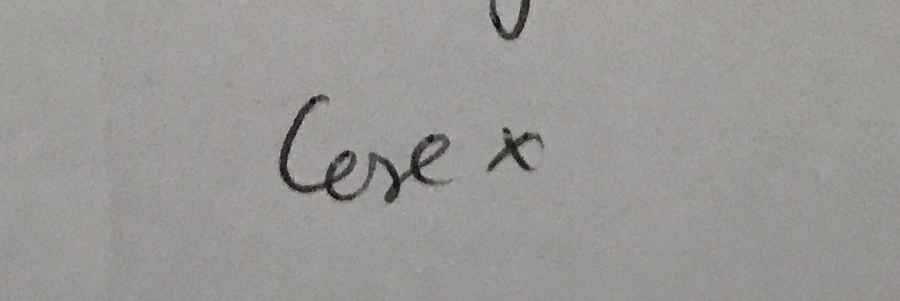 Cere x